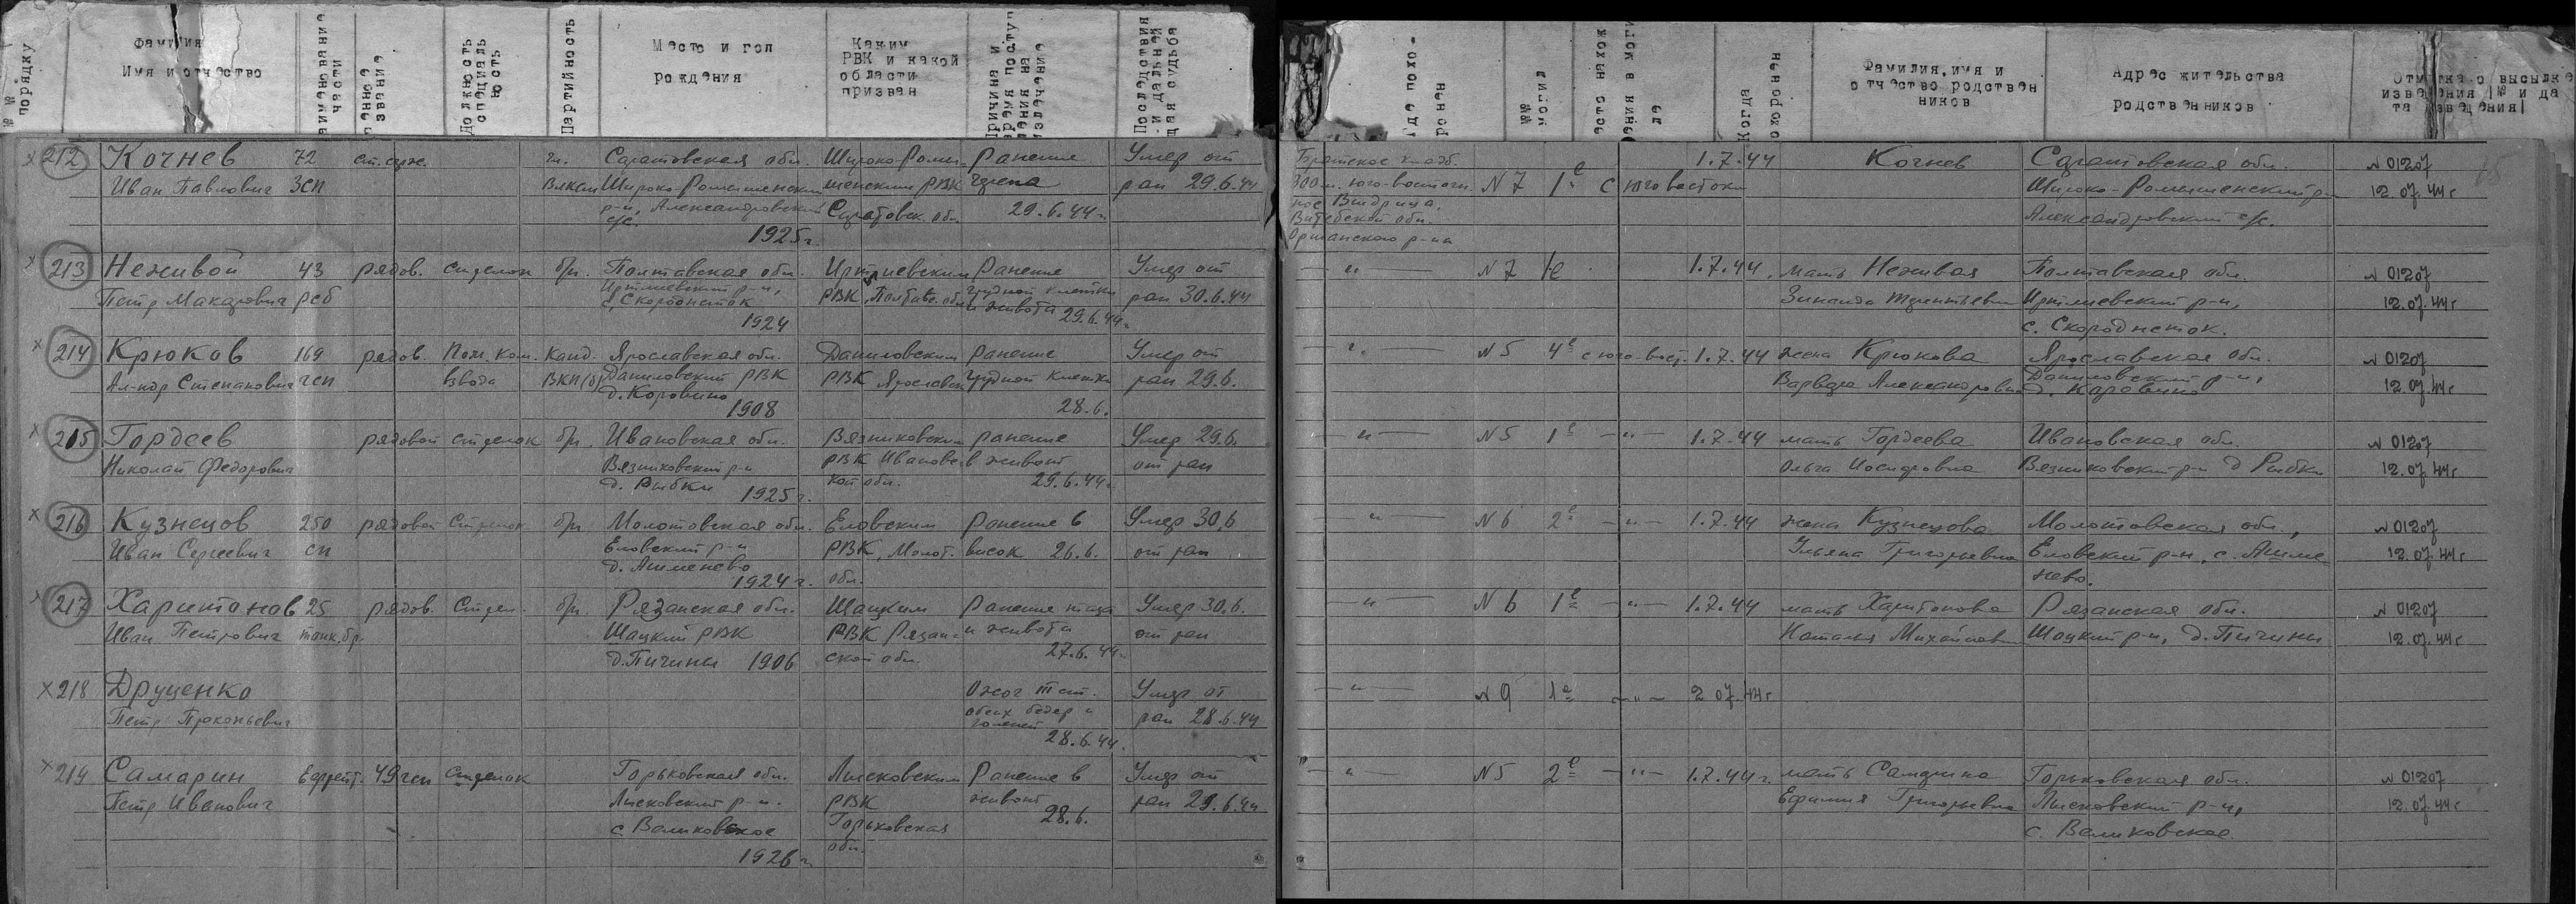 №№ порядку
Фамилия Имя и отчество
аименование части
звание
Должность специаль ность
Партийность
Место и год рождения
Каким РВК и какой области призван
Последствия и дальней щая судьба
Где похо- ронен
№№ могил
Когда
Фамилия, имя и отчество родствен ников
Адрес жительства родственников
Отметка о высылке извещения /№ и да та извещения/
212 Кочнев 72 ст. серж. чл. Саратовская обл. Широко-Роми- Ранение Умер от
Иван Павлович ЗСП ВЛКСМ шенским РВК черепа ран 29.6.44
р-н, Александровский Саратовск. обл. 29.6.44г.
с/с. 1925г.
213 Неживой 43 рядов. стрелок б/п. Полтавская обл. Ранение Умер от
Петр Макарович рсб р-н, РВК, Полтавс. обл. грудной клетки ран 30.6.44
и живота 29.6.44г.
1924
214 Крюков 169 рядов. Пом. ком. Канд. Ярославская обл. Даниловским ранение Умер от
Ал-ндр Степанович гсп взвода ВКП(б) Даниловский РВК РВК Ярославск грудной клетки ран 29.6.
д. Коровино 1908 28.6.
215 Гордеев рядовой стрелок б/п. Ивановская обл. Вязниковским ранение Умер 29.6.
Николай Федорович Вязниковский р-н РВК Ивановс в живот от ран
д. Рыбки 1925г. кой обл. 29.6.44г.
216 Кузнецов 250 рядовой Стрелок б/п Молотовская обл. Еловским Ранение в Умер 30.6
Иван Сергеевич сп Еловский р-н РВК, Молот. висок 26.6. от ран
1924г. обл.
217 Харитонов 25 рядов. Стрел. б/п. Рязанская обл. Шацким Ранение таза Умер 30.6.
Иван Петрович танк.бр. Шацкий РВК РВК Рязан- и живота от ран
д. Пичины 1906 ской обл. 27.6.44г.
218 Друценко Ожог Умер от
Петр Прокопьевич обеих бедер и ран 28.6.44
голеней 28.6.44.
219 Самарин Ефрейт. 49 гсп Стрелок Горьковская обл. Лысковским Ранение в Умер от
Петр Иванович Лысковский р-н. РВК живот ран 29.6.44
с Великовское Горьковская 28.6.
1926г. обл.
Братское кладб. 1.7.44 Кочнев Саратовская обл. № 01207
300 м. юго-восточн № 7 1е с юго востока 12.07.44г
Витебской обл. Александровский с/с.
Оршанского р-на
—"— № 7 1е 1.7.44. мать Неживая Полтавская обл. № 01207
р-н, 12.07.44г
с.
—"— № 5 4е с юго-вост. 1.7.44 жена Крюкова Ярославская обл. № 01207
Варвара Александровна Даниловский р-н, д. Коровино 12.07.44г
—"— № 5 1е —"— 1.7.44 мать Гордеева Ивановская обл. № 01207
Ольга Вязниковский р-н д Рыбки 12.07.44г
—"— № 6 2е —"— 1.7.44 жена Кузнецова Молотовская обл., № 01207
Ульяна Григорьевна Еловский р-н, с. 12.07.44г
нево.
—"— № 6 1е —"— 1.7.44 мать Харитонова Рязанская обл. № 01207
Наталья Михайлов Шацкий р-н, д. Пичины 12.07.44г
—"— № 9 1е —"— 2 07.44г
—"— № 5 2е —"— 1.7.44г. мать Самарина Горьковская обл. № 01207
Ефимия Григорьевна Лысковский р-н, 12.07.44г
с. Великовское.